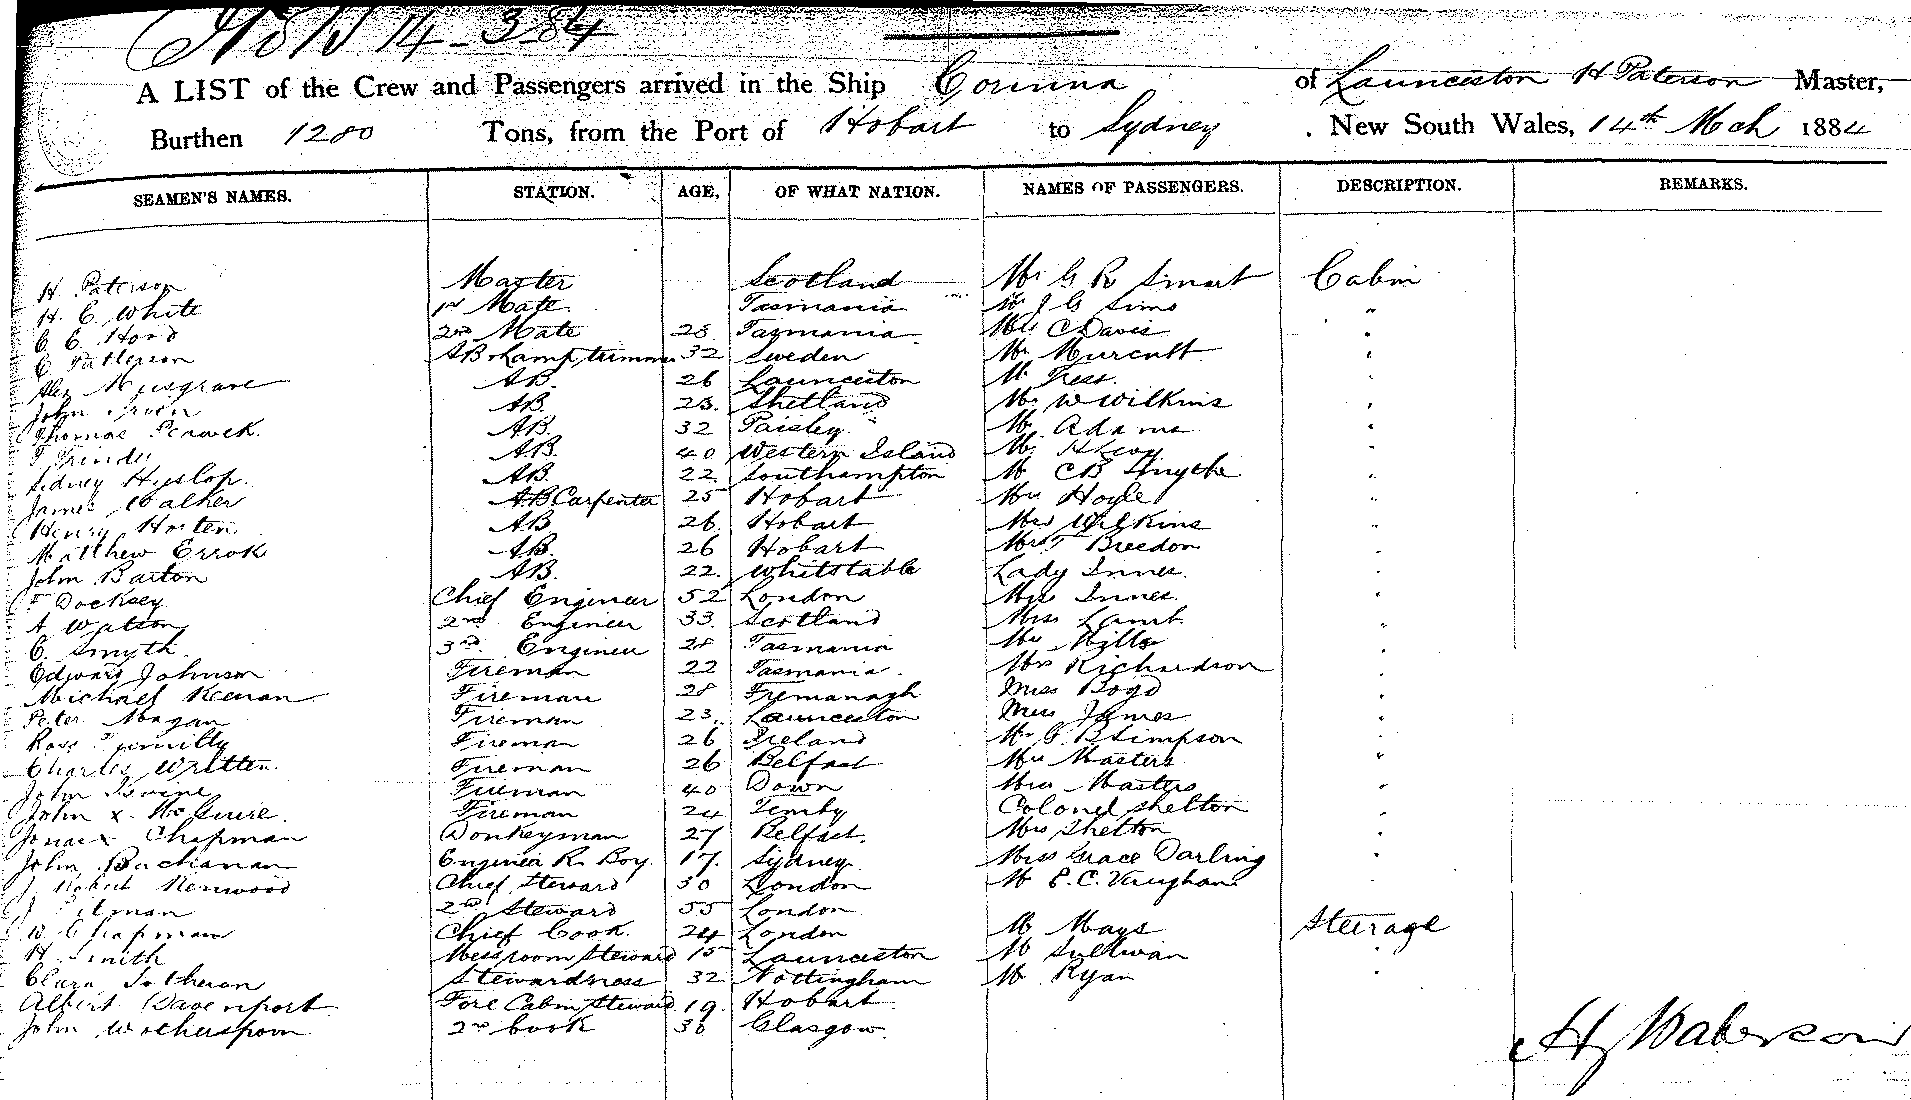 A LIST of the Crew and Passengers arrived in the Ship Corinna of Launceston H Paterson Master,
Burthen 1280 Tons, from the Port of Hobart to Sydney . New South Wales, 14th Mch 1884
SEAMEN'S NAMES. STATION. AGE, OF WHAT NATION. NAMES OF PASSENGERS. DESCRIPTION. REMARKS.
H. Paterson Master Scotland Mr G R Smart Cabin
H. E. White 1st Mate Tasmania Mr J G Sims "
C. C. Hord 2nd Mate Tasmania. C Davis "
C Patterson AB & Lamp trimmer 32 Sweden Mr Murcutt "
Alex Musgrave AB. 26 Launceston "
John AB. Shetland Mr W Wilkins "
Thomas AB. 32 Paisley Mr Adams "
AB. 40 Western Island Mr "
Sidney Hyslop. AB. 22 Southampton Mr C B Smythe "
James Walker AB Carpenter 25 Hobart Hoyle "
Henry Horten. AB 26 Hobart Mrs Wilkins "
Matthew Errok AB. 26 Hobart Breedon "
John Barton AB. 22. Whitstable Lady Innes. "
Docksey Chief Engineer 52 London Miss Innes. "
A Watson 2nd Engineer 33. Scotland Miss Lamb "
C. Smyth. 3rd Engineer 28 Tasmania "
Edward Johnson Fireman 22 Tasmania. Mrs Richardson "
Michael Keenan Fireman 28 Miss Boyd "
Peter Magan Fireman 23. Launceston Miss James "
Ross Fireman 26 Ireland Mr Simpson "
Charles Written. Fireman 26 Belfast Mr Masters "
John Fireman 40 Down Mrs Masters "
John x McGuire. Fireman 24 Tenby Colonel Shelton "
Chapman Donkeyman 27 Belfast. Mrs Shelton "
John Buchanan Engineer R. Boy. 17. Sydney Miss Grace Darling "
J Robert Kenwood Chief Steward 30 London Mr E. C. Vaughan "
J 2nd Steward 55 London
Chapman Chief Cook. 24 London Mr Mays Steerage
H Smith Messroom Steward 15 Launceston Mr Sullivan "
Clara Sotheran Stewardness 32 Nottingham Mr Ryan "
Albert Davenport Fore Cabin Steward 19. Hobart
John Wotherspoon 2nd Cook Glasgow